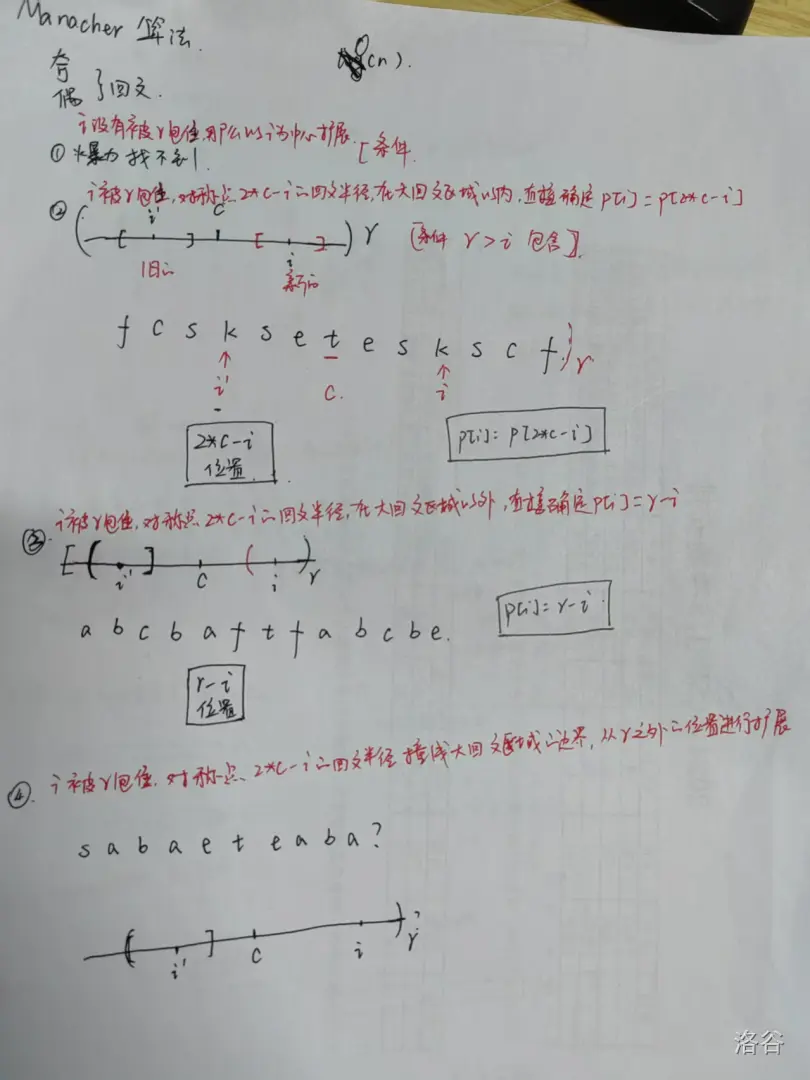 Manacher 算法.
O(n).
奇
偶 了回文.
i没有被r包住,那么以i为中心扩展. [条件
① 暴力找不到
i被r包住,对称点2*c-i的回文半径,在大回文区域以内,直接确定p[i]=p[2*c-i]
②
i' C r
[条件 r>i 包含].
旧i 新i i
f c s k s e t e s k s c f r
i' c. i
2*c-i
位置
p[i]=p[2*c-i]
i被r包住,对称点2*c-i的回文半径,在大回文区域以外,直接确定p[i]=r-i
③.
i' c i r
p[i]=r-i
a b c b a f t f a b c b e.
r-i
位置
i被r包住,对称点2*c-i的回文半径撞线大回文区域的边界,从r之外的位置进行扩展
④.
s a b a e t e a b a ?
i' c i r
洛谷